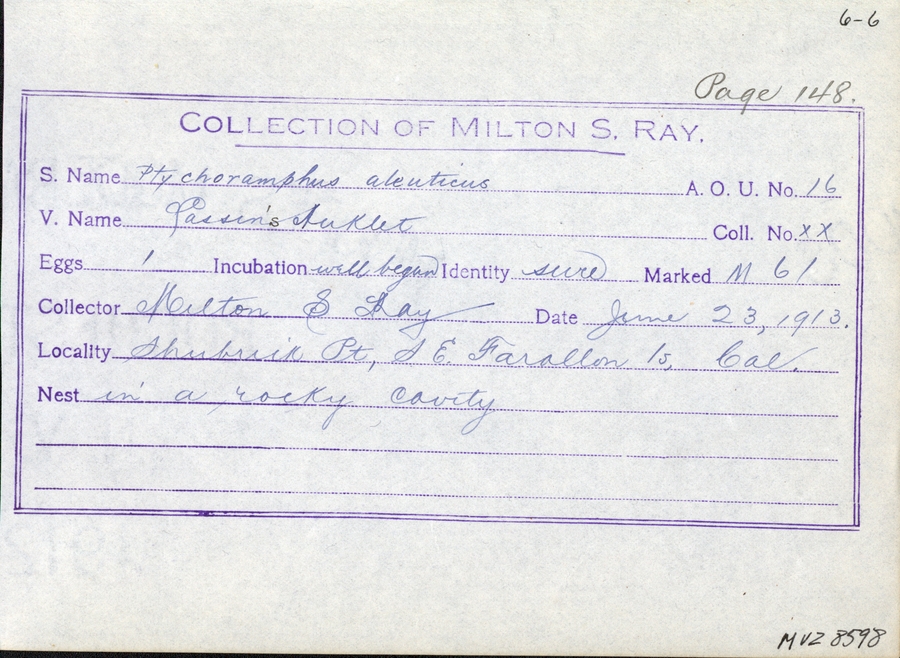 6-6
Page 148.
COLLECTION OF MILTON S. RAY.
S. Name Ptychoramphus aleuticus A. O. U. No. 16
V. Name Cassin's Auklet Coll. No. XX
Eggs 1 Incubation well begun Identity sure Marked M 61
Collector Milton S Ray Date June 23, 1913.
Locality Shubrick Pt, S E. Farallon Is, Cal.
Nest in a rocky cavity
MVZ 8598